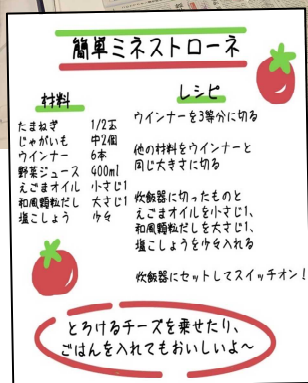 簡単ミネストローネ
材料
たまねぎ 1/2玉
じゃがいも 中2個
ウインナー 6本
野菜ジュース 400ml
えごまオイル 小さじ1
和風顆粒だし 大さじ1
塩こしょう 少々
レシピ
ウインナーを3等分に切る
他の材料をウインナーと
同じ大きさに切る
炊飯器に切ったものと
えごまオイルを小さじ1、
和風顆粒だしを大さじ1、
塩こしょうを少々入れる
炊飯器にセットしてスイッチオン!
とろけるチーズを乗せたり、
ごはんを入れてもおいしいよ~